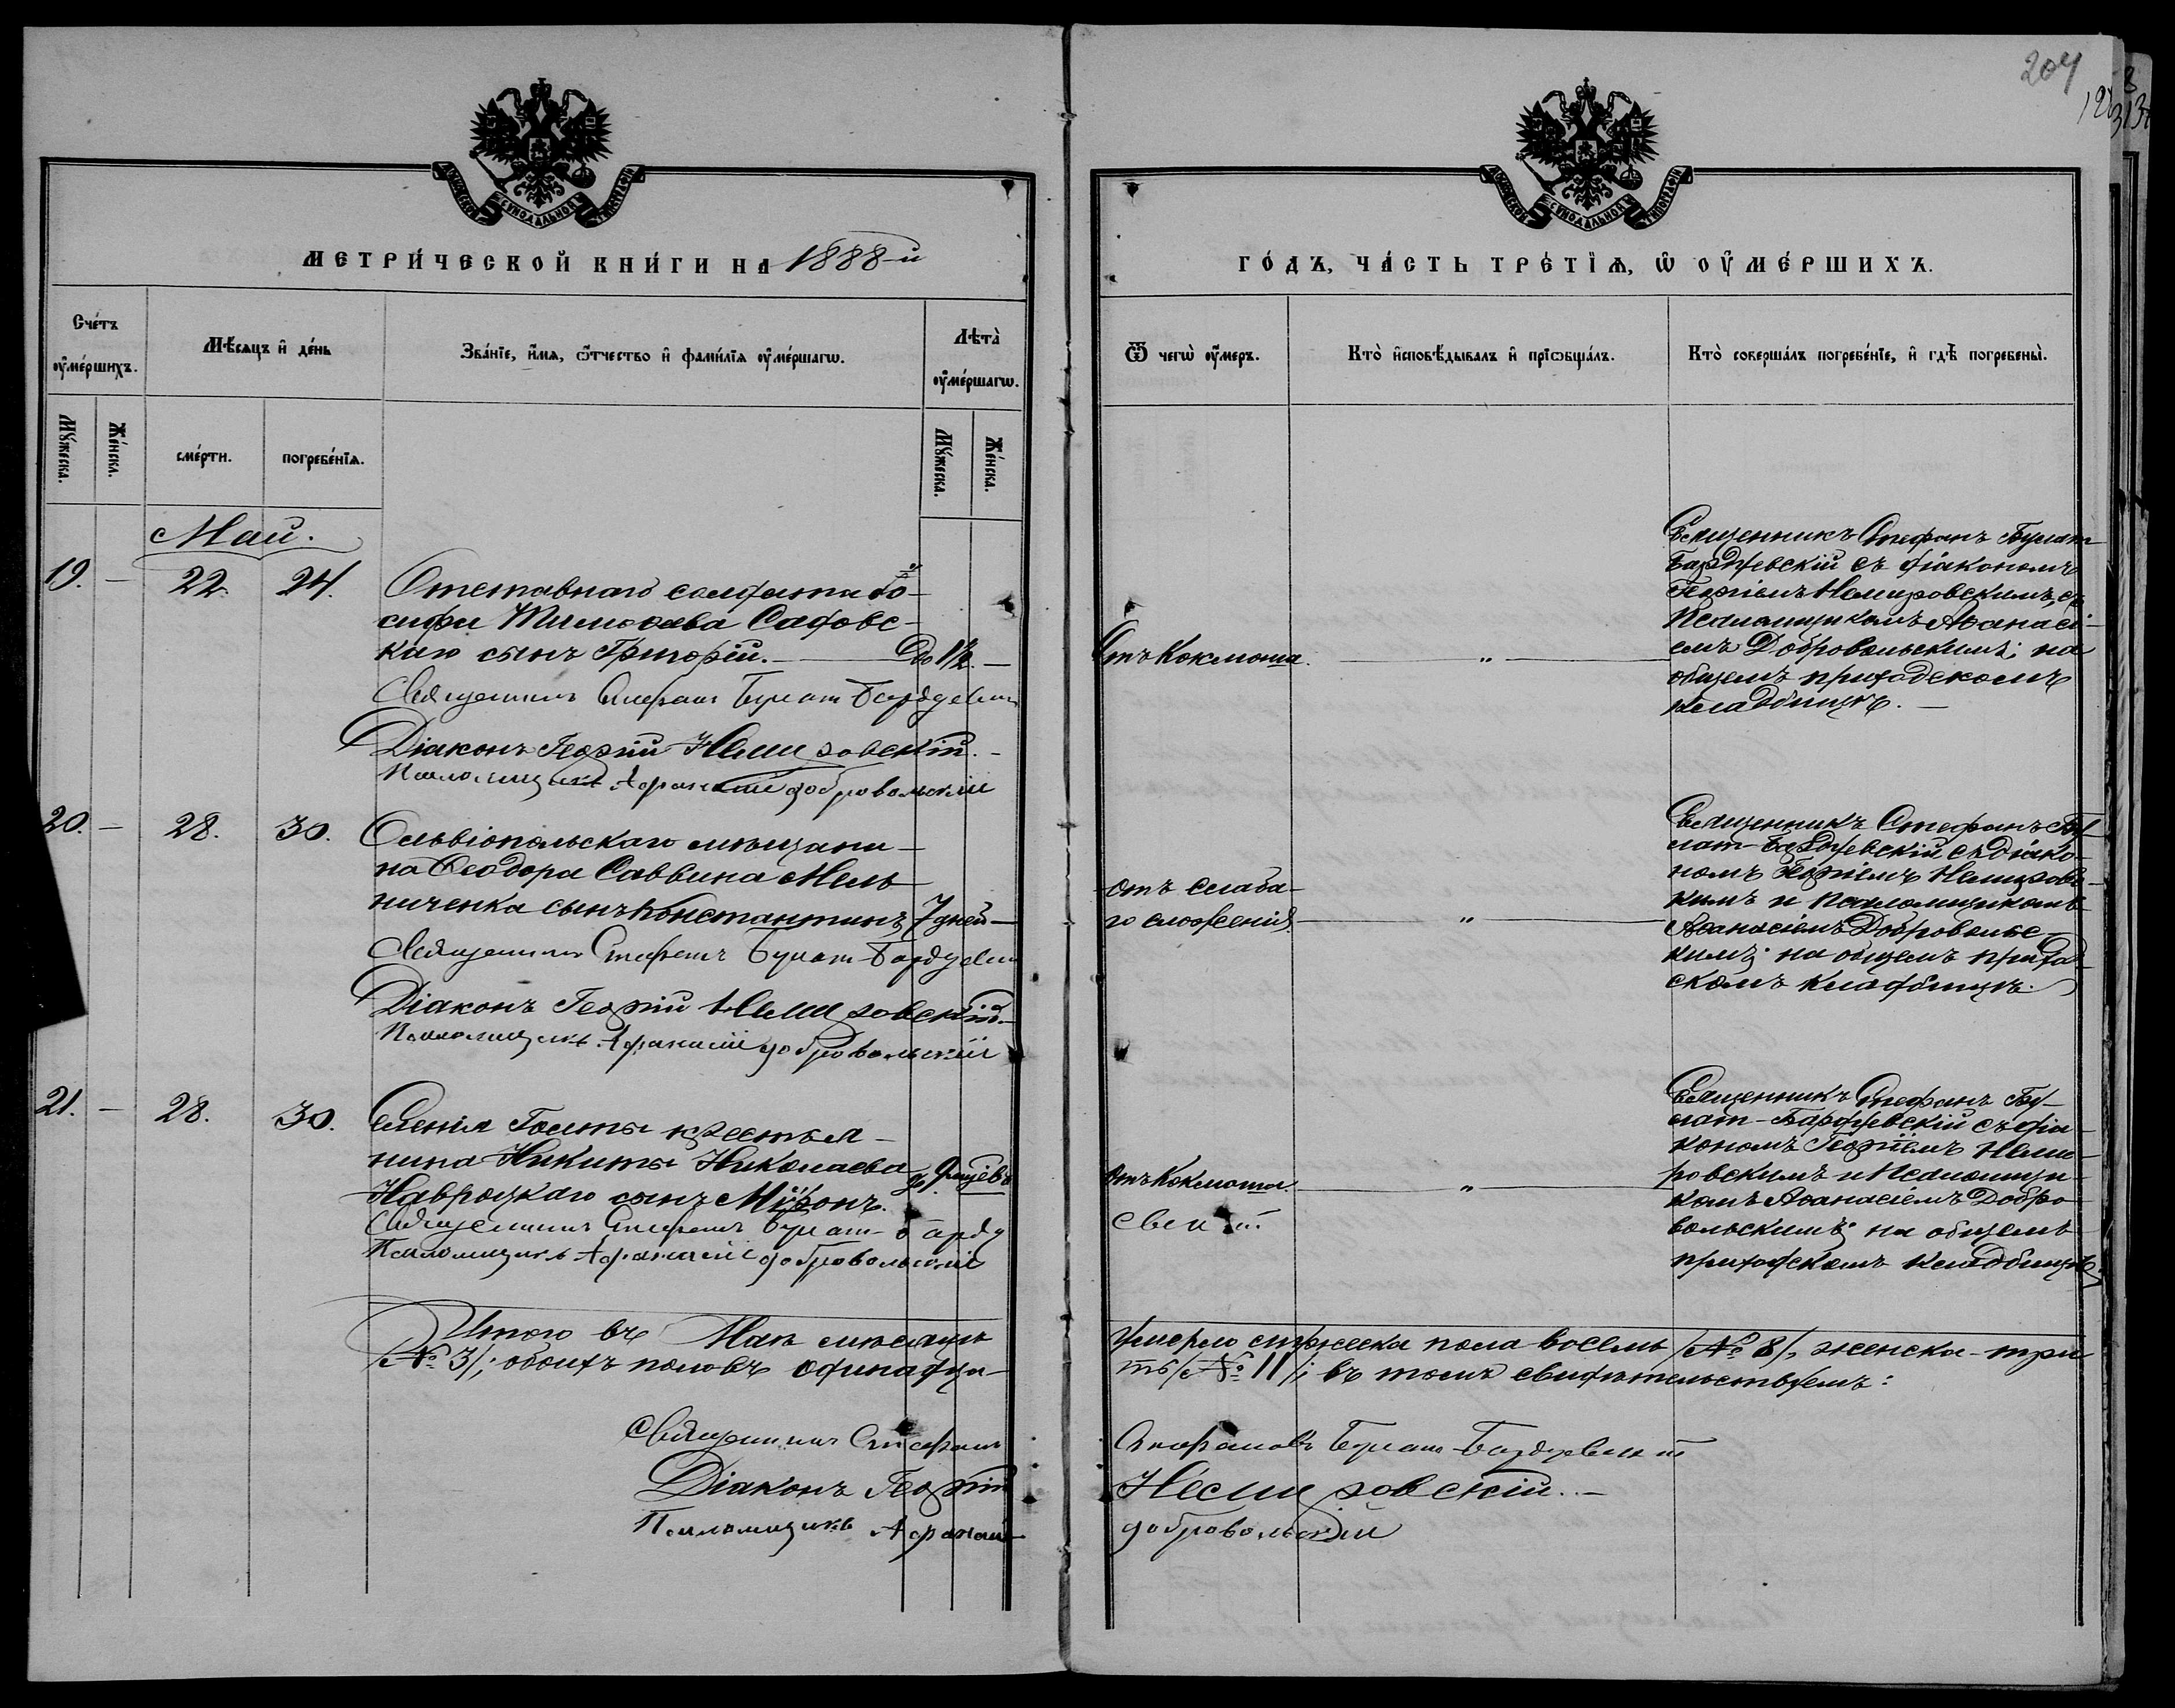 204
МОСКОВСКОЙ СѴНОДАЛЬНОЙ ТИПОГРАФІИ
МОСКОВСКОЙ СѴНОДАЛЬНОЙ ТИПОГРАФІИ
МЕТРИ́ЧЕСКОЙ КНИ́ГИ НА 1888-й
ГО́ДЪ, ЧА́СТЬ ТРЕ́ТІѦ, Ѡ ОУ҆МЕ́РШИХЪ.
Сче́тъ оу҆ме́ршихъ.
Мѣ́сяцъ и҆ де́нь
Зва́нїе, и҆́мя, ѻ҆́тчество и҆ фами́лїя оу҆ме́ршагѡ.
Лѣта̀ оу҆ме́ршагѡ.
Ѿ чегѡ̀ оу҆́меръ.
Кто̀ и҆сповѣ́дывалъ и҆ прїѡбща́лъ.
Кто̀ соверша́лъ погребе́нїе, и҆ гдѣ̀ погребены̀.
Мꙋ́жеска.
Же́нска.
сме́рти.
погребе́нїя.
Мꙋ́жеска.
Же́нска.
Май.
19. — 22. 24.
Отставнаго солдата Іо-
сифа Тимофѣева Садовс-
каго сынъ Григорій. — До 1½. —
Священникъ Стефанъ Булат Бардуевск
Діаконъ Георгій Немировскій. —
Псаломщикъ Афанасій Добровольскій
Отъ Коклюша. — „ —
Священникъ Стефанъ Булат
Бардуевскій съ діакономъ
Георгіемъ Немировскимъ, съ
Псаломщикомъ Аѳанасі-
емъ Добровольскимъ; на
общемъ приходскомъ
кладбищѣ. —
20. — 28. 30.
Ольвіопольскаго мѣщани-
на Ѳеодора Саввина Мель-
ниченка сынъ Константинъ 7 дней —
Священникъ Стефанъ Булат-Бардуевск
Діаконъ Георгій Немировскій. —
Псаломщикъ Афанасій Добровольскій
отъ слаба-
го сложенія — „ —
Священникъ Стефанъ Бу-
лат-Бардуевскій съ діако-
номъ Георгіемъ Немировс-
кимъ и Псаломщикомъ
Аѳанасіемъ Добровольс-
кимъ; на общемъ приход-
скомъ кладбищѣ.
21. — 28. 30.
Селенія Голты крестья-
нина Никиты Николаева
Навроцкаго сынъ Мѵронъ.
Священникъ Стефанъ Булат-Барду
Псаломщикъ Афанасій Добровольскій
отъ Коклюша. — „ —
евскій
Священникъ Стефанъ Бу-
лат-Бардуевскій съ діа-
кономъ Георгіемъ Неми-
ровскимъ и Псаломщи-
комъ Аѳанасіемъ Добро-
вольскимъ; на общемъ
приходскомъ кладбищѣ.
Итого въ Маѣ мѣсяцѣ умерло мужеска пола восемь /№ 8/, женска - три
/№ 3/; обоихъ половъ одинадца-ть /№ 11/; въ томъ свидѣтельствуемъ:
Священникъ Стефанъ Стефановъ Булат-Бардуевскій
Діаконъ Георгій Немировскій. —
Псаломщикъ Афанасій Добровольскій